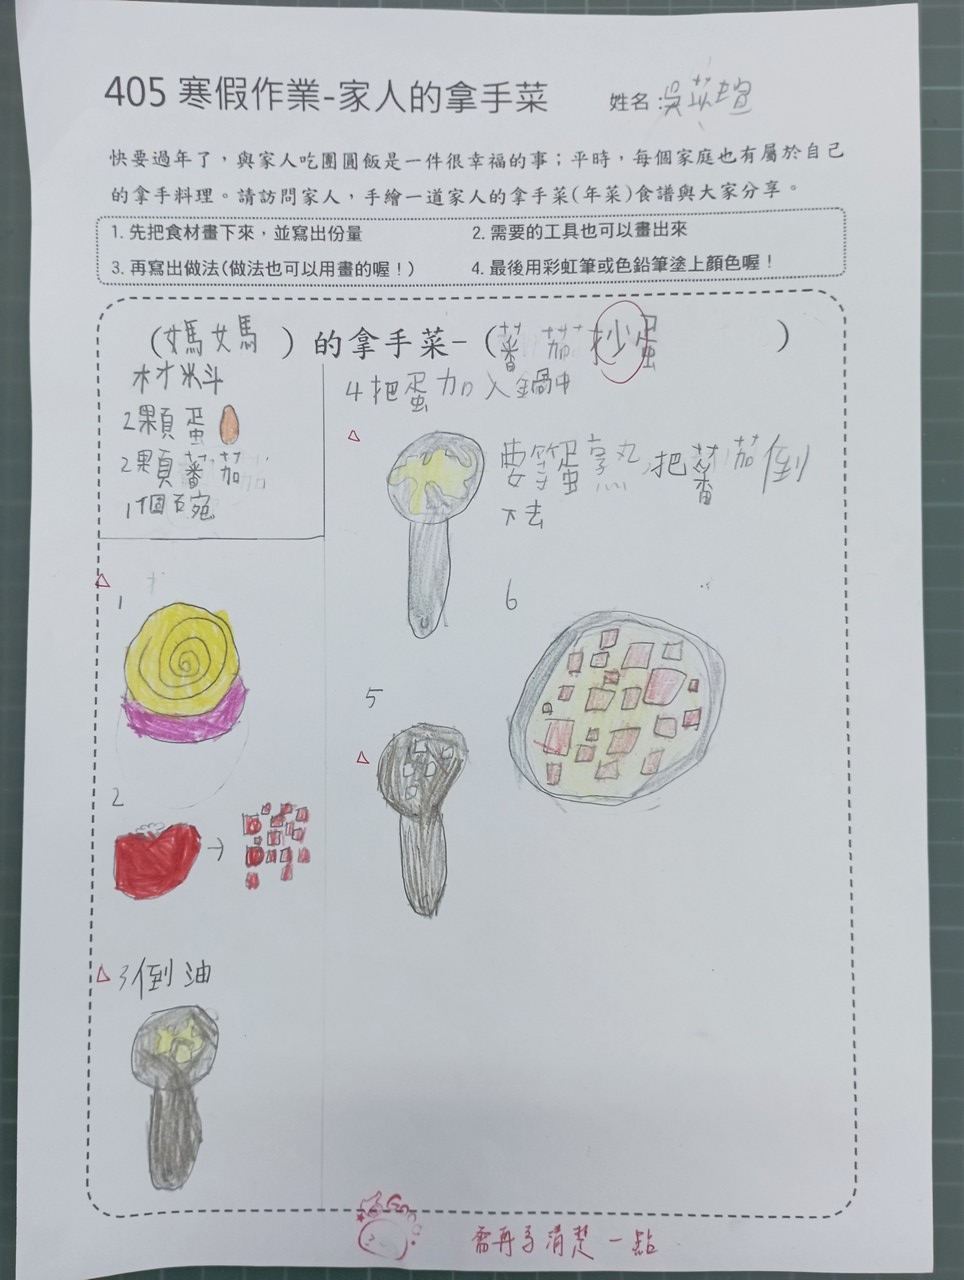 405 寒假作業-家人的拿手菜
姓名：吳苡瑄
快要過年了，與家人吃團圓飯是一件很幸福的事；平時，每個家庭也有屬於自己
的拿手料理。請訪問家人，手繪一道家人的拿手菜(年菜)食譜與大家分享。
1. 先把食材畫下來，並寫出份量
2. 需要的工具也可以畫出來
3. 再寫出做法(做法也可以用畫的喔！)
4. 最後用彩虹筆或色鉛筆塗上顏色喔！
(媽媽)的拿手菜-(蕃茄抄蛋)
材料
2顆蛋
2顆蕃茄
1個瓦碗
1
2
3倒油
4把蛋加入鍋中
要等蛋熟 把蕃茄倒
下去
5
6
Good
需再寫清楚一點